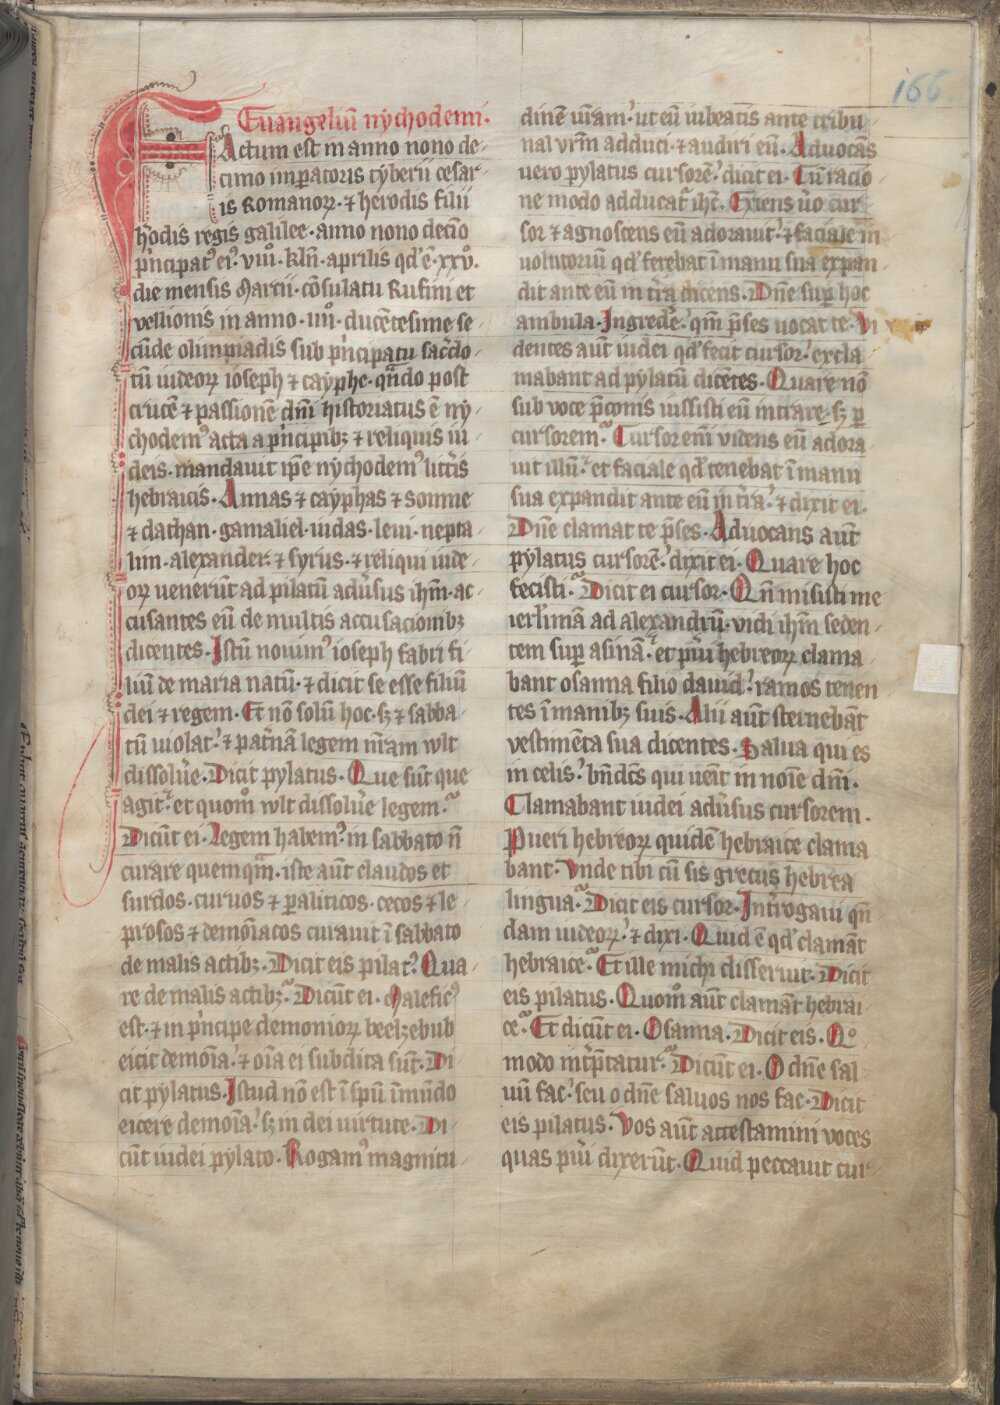 166
Euangeliū nychodemi.
FActum est in anno nono de-
cimo imperatoris tyberii cesar
is Romanoꝝ ⁊ herodis filii
h̓odis regis galilee. anno nono decīo
p̓ncipatꝰ eiꝰ. viii. kłn̄. aprilis qd̓ ē xxv.
die mensis Marcii. cōsulatu Rufini et
vellionis in anno. iiii. ducētesime se-
cūde olimpiadis sub p̓ncipatu sac̓do-
tū iudeoꝝ ioseph ⁊ cayphe. qn̄do post
crucē ⁊ passionē dn̄i historiatus ē ny-
chodemꝰ acta a p̓ncipibꝫ ⁊ reliquis iu-
deis. mandauit ip̄e nychodemꝰ litt̓is
hebraicis. Annas ⁊ cayphas ⁊ somne
⁊ dathan. gamaliel. iudas. leui. nepta-
lim. alexander. ⁊ syrus. ⁊ reliqui iude-
oꝝ uenerūt ad pilatū adūsus ihm̄. ac-
cusantes eū de multis accusacionibꝫ
dicentes. Istū nouimꝰ ioseph fabri fi-
liū de maria natū. ⁊ dicit se esse filiū
dei ⁊ regem. Et nō solū hoc. sꝫ ⁊ sabba-
tū uiolat. ⁊ pat̓nā legem nr̄am wlt
dissolu̓e. Dicit pylatus. Que sūt que
agit. et quom̊ wlt dissolu̓e legem.
Dicūt ei. Legem habemꝰ. in sabbato n̄
curare quemqm̄. iste aūt claudos et
surdos. curuos ⁊ ꝑaliticos. cecos ⁊ le-
prosos ⁊ demōiacos curauit ī sabbato
de malis actibꝫ. Dicit eis pilatꝰ. Qua-
re de malis actibꝫ. Dicūt ei. Maleficꝰ
est. ⁊ in p̓ncipe demonioꝝ beelzebub
eicit demōia. ⁊ oīa ei subdita sūt. Di-
cit pylatus. Istud nō est ī sp̄u īmūdo
eicere demōia. sꝫ in dei uirtute. Di-
cūt iudei pylato. Rogamꝰ magnitu-
dinē ūr̄am. ut eū iubeatis ante tribu-
nal vr̄m adduci. ⁊ audiri eū. Aduocās
uero pylatus cursorē. dicit ei. Cū racio-
ne modo adducat̓ ihc̄. Exiens ūo cur-
sor ⁊ agnoscens eū adorauit. ⁊ faciale in
uolutoriū qd̓ ferebat ī manu sua expan-
dit ante eū in t̓ra dicens. Dn̄e suꝑ hoc
ambula. Ingred̓e. qm̄ p̄ses uocat te. Vi
dentes aūt iudei qd̓ fecit cursor. excla
mabant ad pylatū dicētes. Quare nō
sub voce p̄conis iussisti eū intrare. sꝫ ꝑ
cursorem. Cursor em̄ videns eū adora-
uit illū. et faciale qd̓ tenebat ī manu
sua expandit ante eū in t̓ra. ⁊ dixit ei.
Dn̄e clamat te p̄ses. Aduocans aūt
pylatus cursorē. dixit ei. Quare hoc
fecisti. Dicit ei cursor. Qn̄ misisti me
ierl̄imā ad alexandrū. vidi ihm̄ seden-
tem suꝑ asinā. et p̓ui hebreoꝝ clama
bant osanna filio dauid. ramos tenen-
tes ī manibꝫ suis. Alii aūt sternebāt
vestimēta sua dicentes. Salua qui es
in celis. bn̄dc̄s qui uēit in noīe dn̄i.
Clamabant iudei adūsus cursorem.
Pueri hebreoꝝ quidē hebraice clama
bant. Vnde tibi cū sis grecus hebrea
lingua. Dicit eis cursor. Int̓rogaui qn̄
dam iudeoꝝ. ⁊ dixi. Quid ē qd̓ clamāt
hebraice. Et ille michi disseruit. Dicit
eis pilatus. Quom̊ aūt clamāt hebrai-
ce. Et dicūt ei. Osanna. Dicit eis. Qo
modo int̓p̄tatur. Dicūt ei. O dn̄e sal
uū fac. seu o dn̄e saluos nos fac. Dicit
eis pilatus. Vos aūt attestamini voces
quas p̓ui dixerūt. Quid peccauit cur